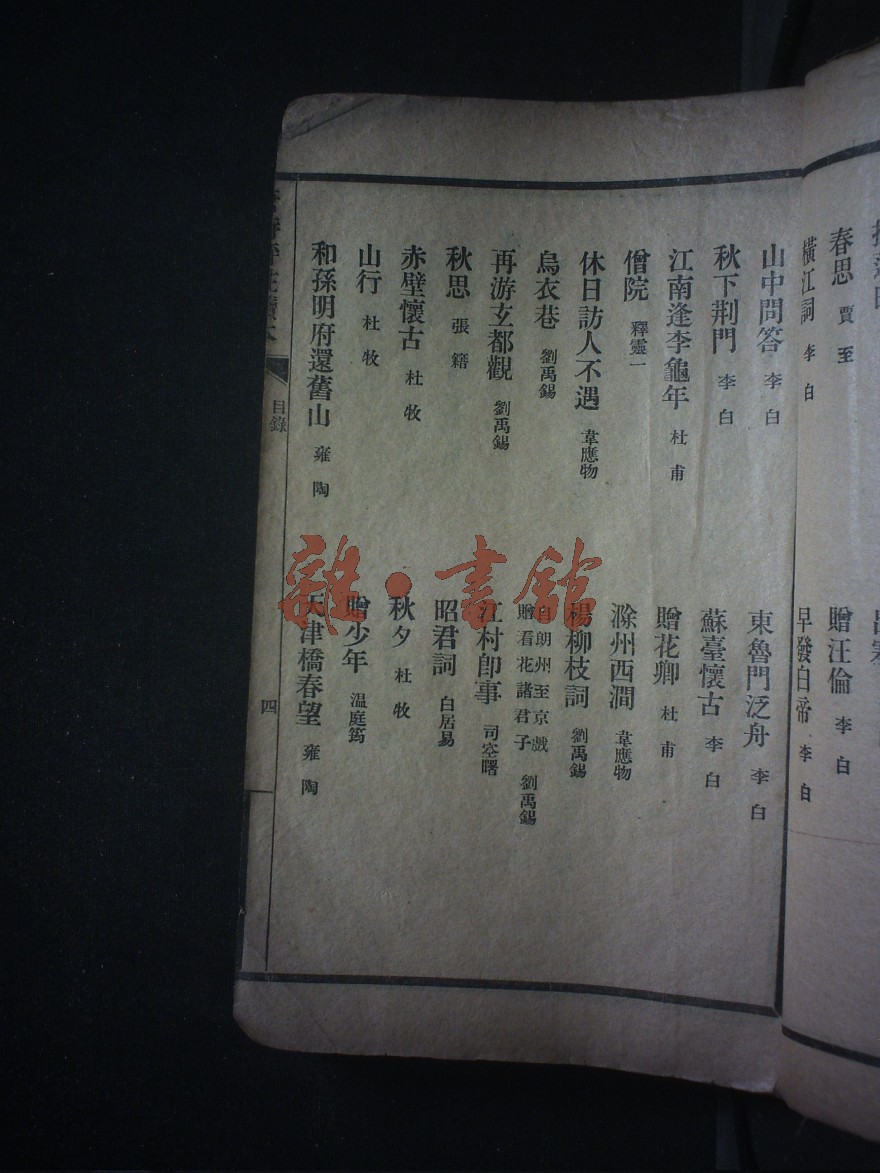 春思 賈至
贈汪倫 李白
橫江詞 李白
早發白帝 李白
山中問答 李白
東魯門泛舟 李白
秋下荆門 李白
蘇臺懷古 李白
江南逢李龜年 杜甫
贈花卿 杜甫
僧院 釋靈一
滁州西澗 韋應物
休日訪人不遇 韋應物
楊柳枝詞 劉禹錫
烏衣巷 劉禹錫
自朗州至京戲
贈看花諸君子 劉禹錫
再游玄都觀 劉禹錫
江村卽事 司空曙
秋思 張籍
昭君詞 白居易
赤壁懷古 杜牧
秋夕 杜牧
山行 杜牧
贈少年 温庭筠
和孫明府還舊山 雍陶
天津橋春望 雍陶
讀本
目錄
四
雜·書館